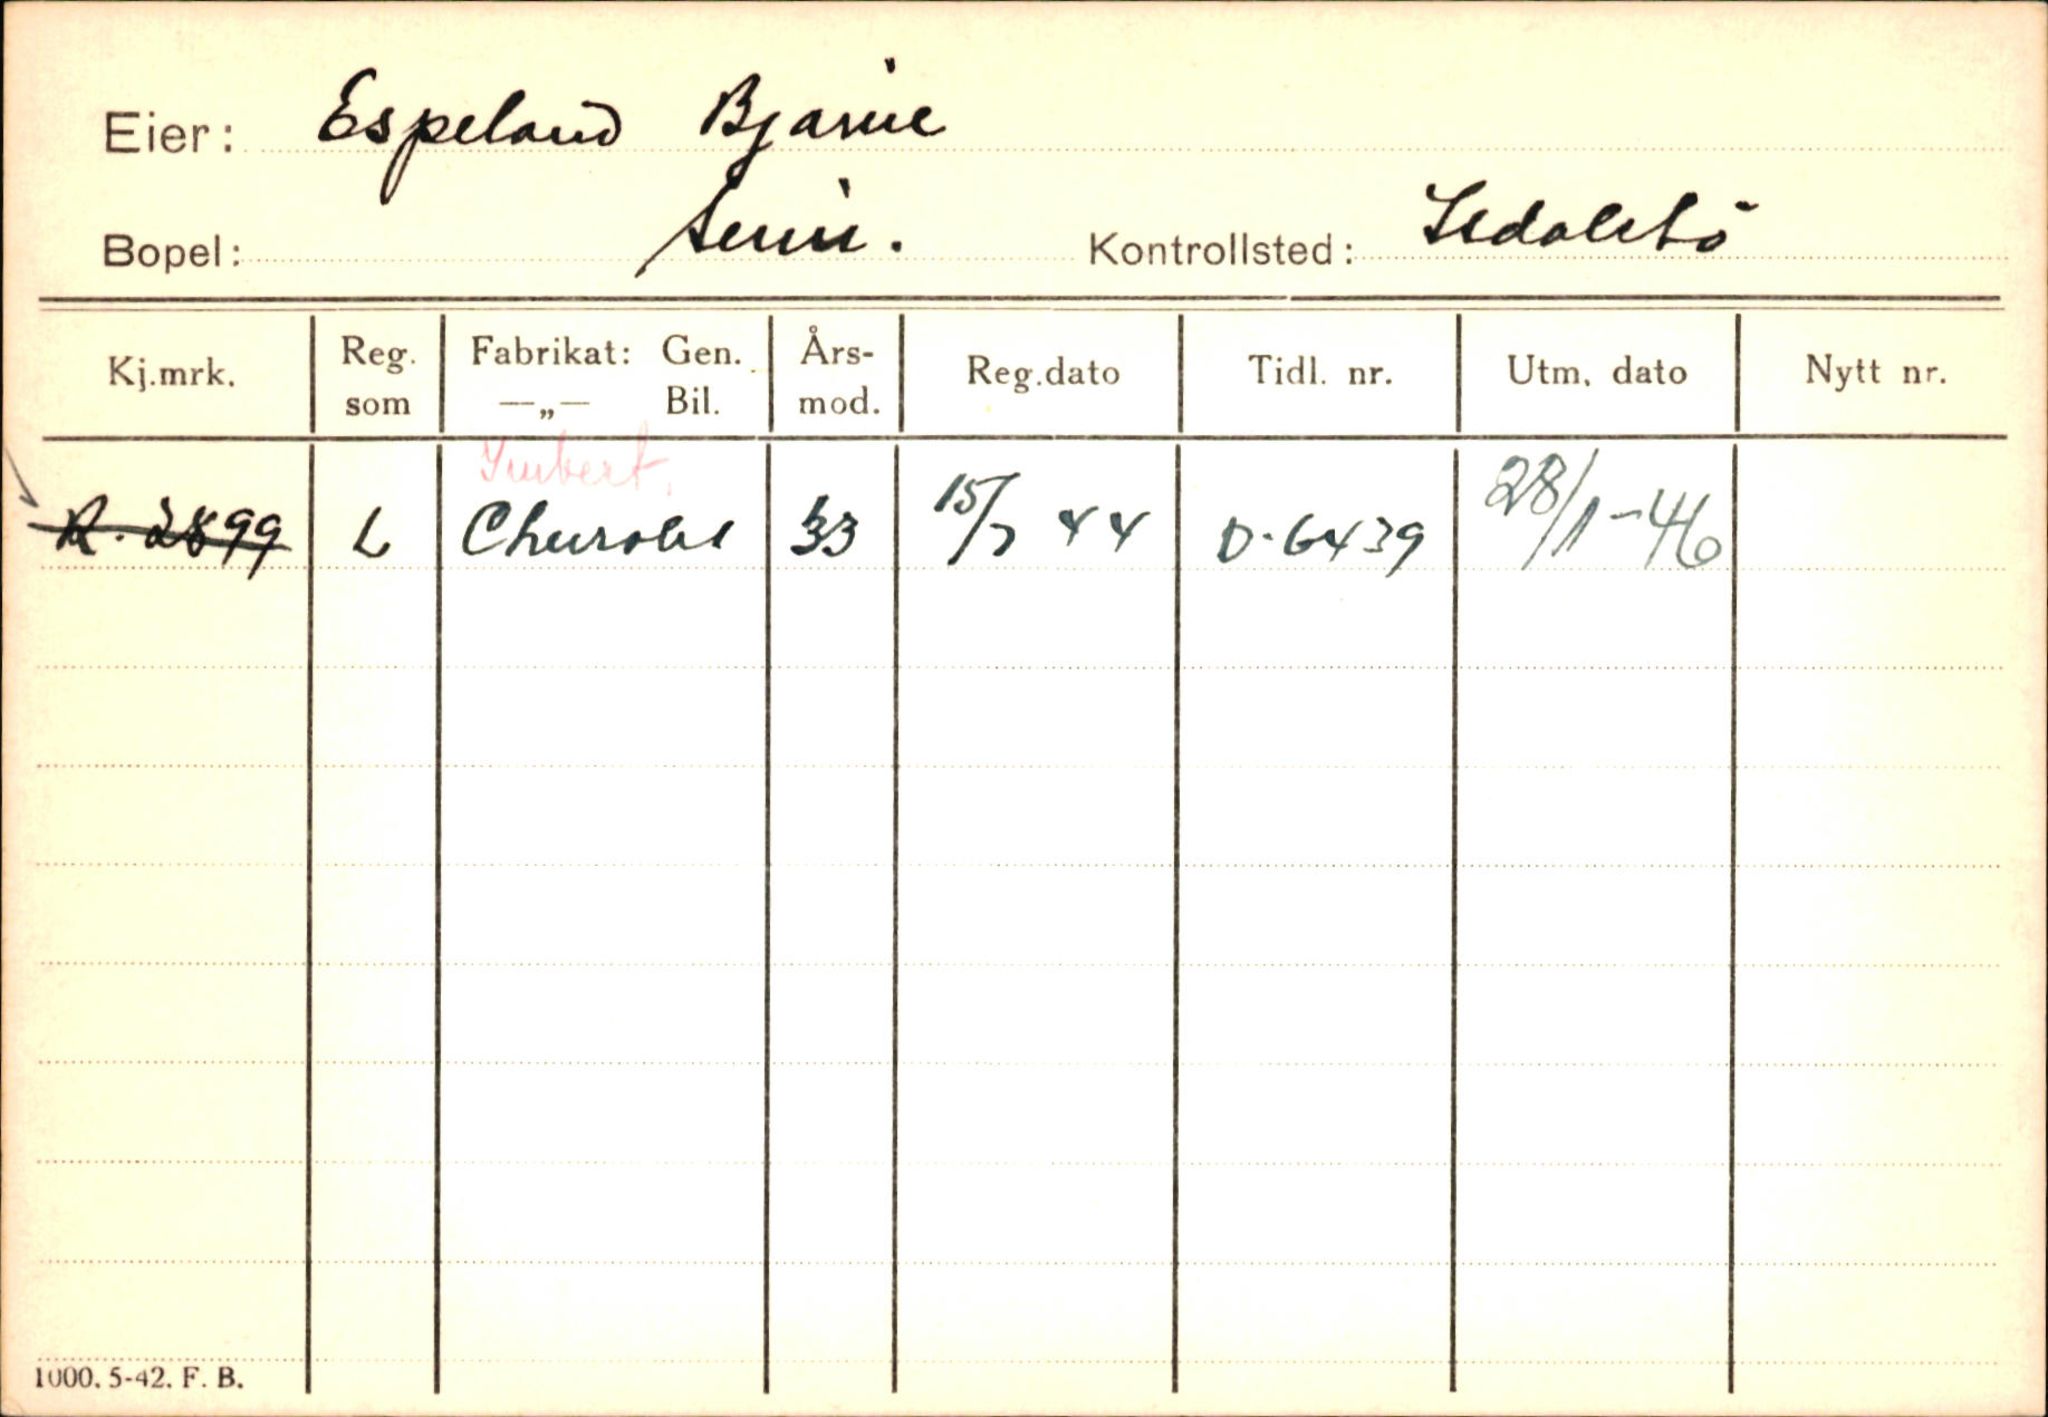 Eier: Espeland Bjarne
Bopel: Kontrollsted:
Kj.mrk. Reg. som Fabrikat: Gen. —„— Bil. Års-mod. Reg.dato Tidl. nr. Utm. dato Nytt nr.
Imbert.
R. 2899 L Chevrolet 33 15/7 44 D-6439 28/1-46
1000. 5-42. F. B.